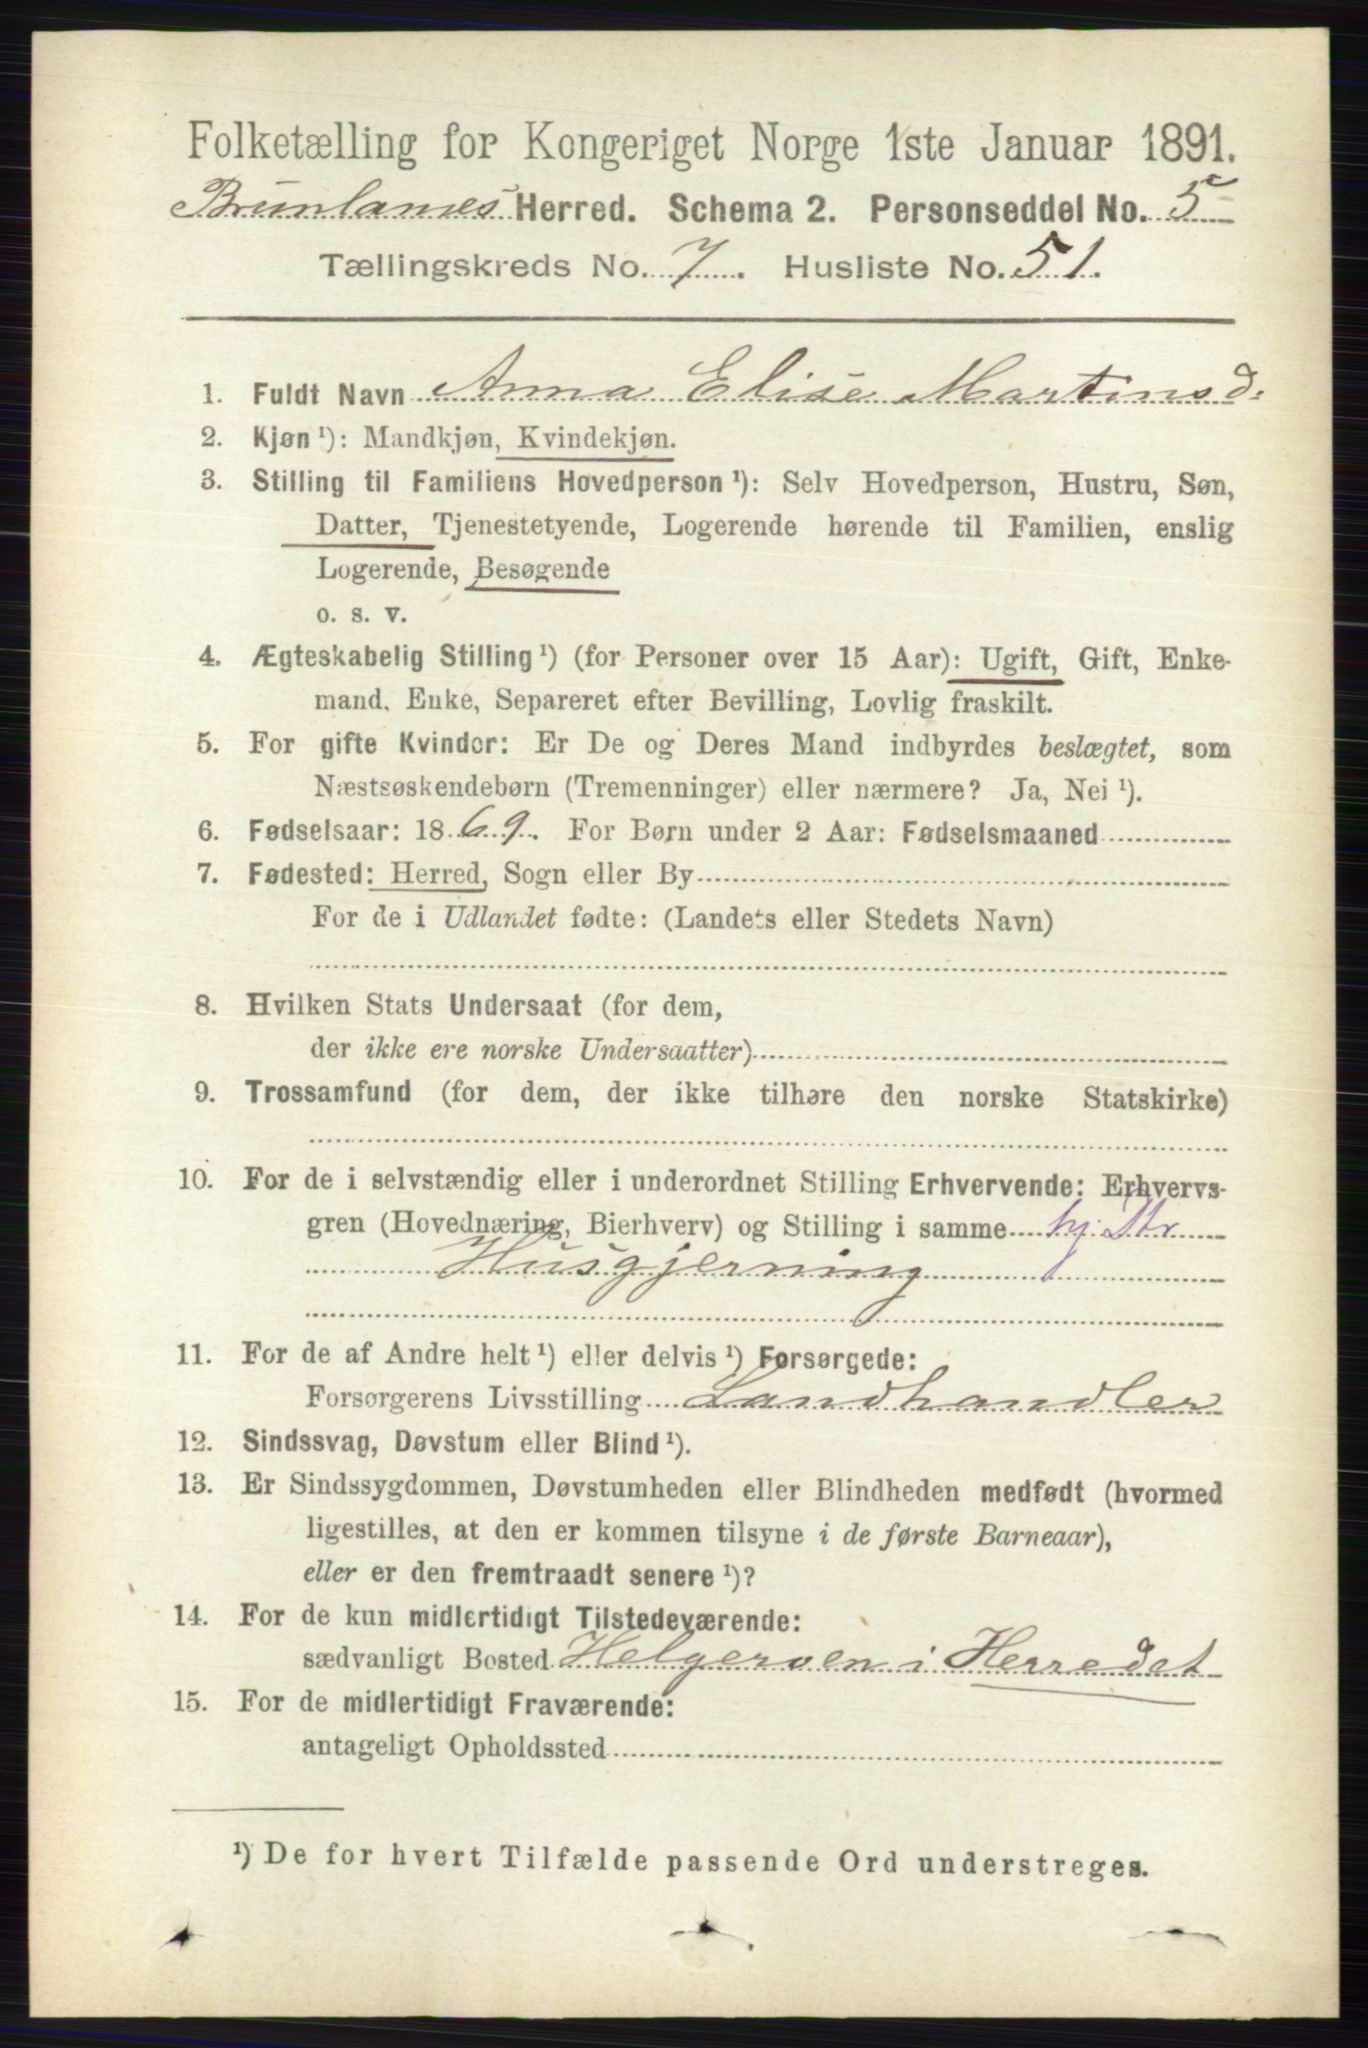 Folketælling for Kongeriget Norge 1ste Januar 1891.
Brunlanes Herred. Schema 2. Personseddel No. 5
Tællingskreds No. 7. Husliste No. 51.
1. Fuldt Navn Anna Elise Martinsd:
2. Kjøn ¹): Mandkjøn, Kvindekjøn.
3. Stilling til Familiens Hovedperson ¹): Selv Hovedperson, Hustru, Søn,
Datter, Tjenestetyende, Logerende hørende til Familien, enslig
Logerende, Besøgende
o. s. v.
4. Ægteskabelig Stilling ¹) (for Personer over 15 Aar): Ugift, Gift, Enke-
mand, Enke, Separeret efter Bevilling, Lovlig fraskilt.
5. For gifte Kvinder: Er De og Deres Mand indbyrdes beslægtet, som
Næstsøskendebørn (Tremenninger) eller nærmere? Ja, Nei ¹).
6. Fødselsaar: 1869. For Børn under 2 Aar: Fødselsmaaned
7. Fødested: Herred, Sogn eller By
For de i Udlandet fødte: (Landets eller Stedets Navn)
8. Hvilken Stats Undersaat (for dem,
der ikke ere norske Undersaatter)
9. Trossamfund (for dem, der ikke tilhøre den norske Statskirke)
10. For de i selvstændig eller i underordnet Stilling Erhvervende: Erhvervs-
gren (Hovednæring, Bierhverv) og Stilling i samme hj. Str
Husgjerning
11. For de af Andre helt ¹) eller delvis ¹) Forsørgede:
Forsørgerens Livsstilling Landhandler
12. Sindssvag, Døvstum eller Blind ¹).
13. Er Sindssygdommen, Døvstumheden eller Blindheden medfødt (hvormed
ligestilles, at den er kommen tilsyne i de første Barneaar),
eller er den fremtraadt senere ¹)?
14. For de kun midlertidigt Tilstedeværende:
sædvanligt Bosted Helgeroen i Herredet
15. For de midlertidigt Fraværende:
antageligt Opholdssted
¹) De for hvert Tilfælde passende Ord understreges.